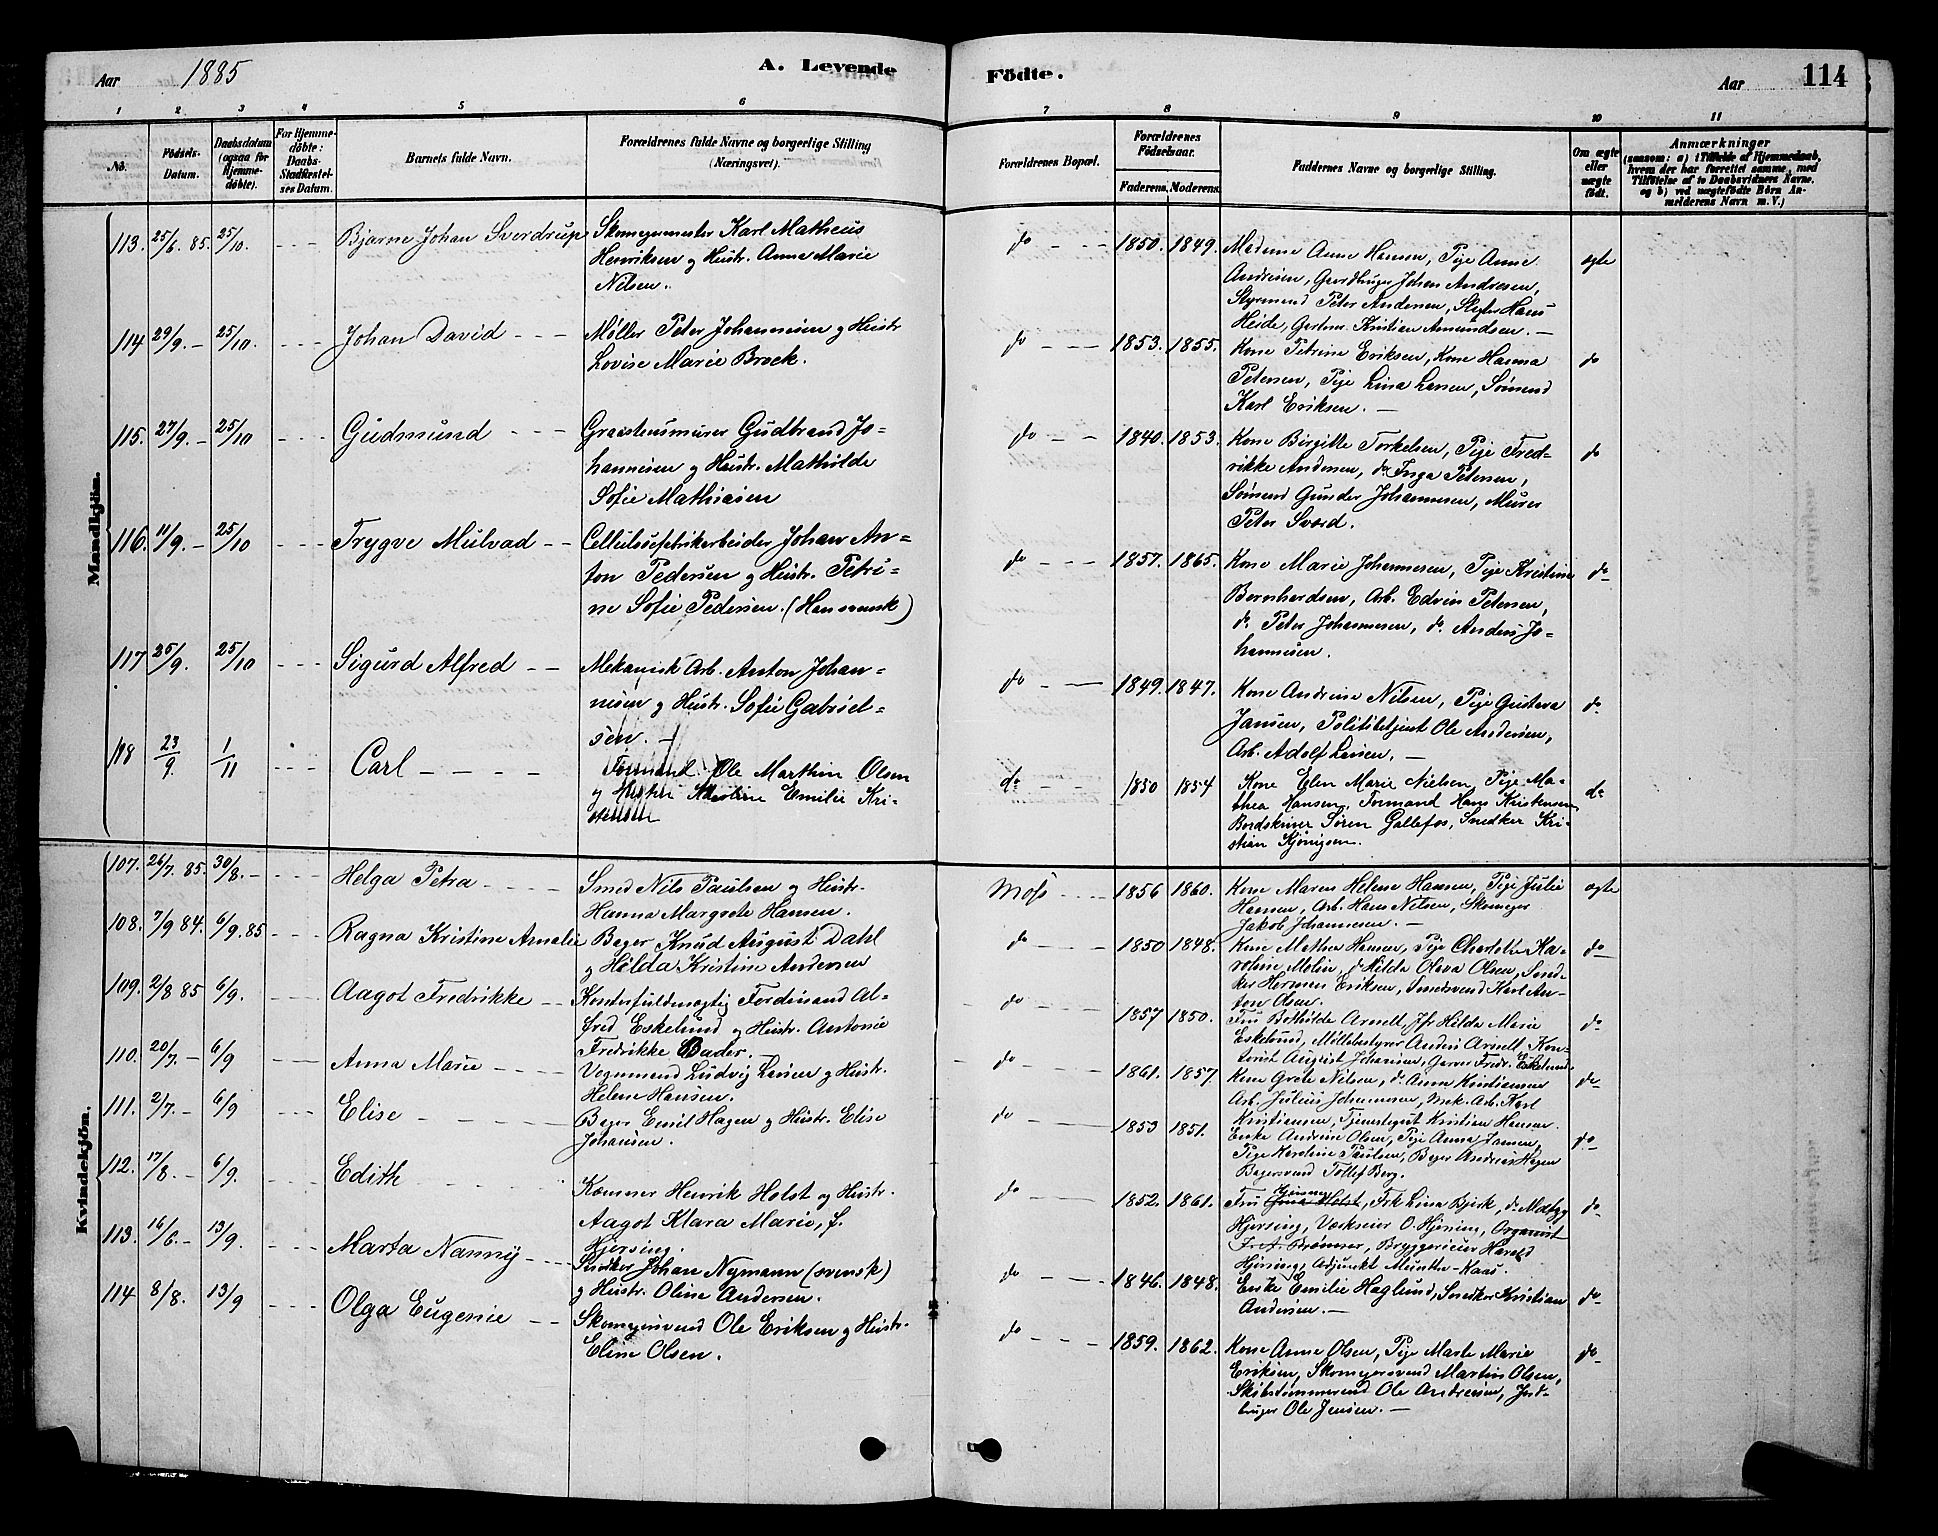 Aar 1885
A. Levende
Födte.
Aar
114
1 2 3 4 5 6 7 8 9 10 11
No.
Födsels-Datum.
Daabsdatum (ogsaa for Hjemme-döbte).
For Hjemme-döbte: Daabs-Stadfæstel-ses Datum.
Barnets fulde Navn.
Forældrenes fulde Navne og borgerlige Stilling (Næringsvei).
Forældrenes Bopæl.
Forældrenes Födselsaar.
Faderens. Moderens.
Faddernes Navne og borgerlige Stilling.
Om ægte eller uægte födt.
Anmærkninger
(saasom: a) i Tilfælde af Hjemmedaab, hvem der har forrettet samme, med Tilföielse af to Daabsvidners Navne, og b) ved uægtefödte Börn An-melderens Navn m. V.)
Mandkjön.
113. 25/6. 85. 25/10. Bjarne Johan Sverdrup Skomagermester Karl Matheus
Henriksen og Hustr. Anne Marie
Nilsen.
do 1850. 1849. Madame Anne Hansen, Pige Anne
Andresen, Gaardbruger Johan Andresen,
Styrmand Peter Andersen, Slagter Hans
Heide, Gartner Kristian Amundsen. ægte
114 29/9. 25/10. Johan David Møller Peter Johannesen og Hustr
Lovise Marie Brock.
do 1853. 1855. Kone Petrine Eriksen, Kone Hanna
Petersen, Pige Lina Larsen, Sømand
Karl Eriksen. do
115. 27/9. 25/10 Gudmund Graastensmurer Gudbrand Jo-
hannesen og Hustr. Mathilde
Sofie Mathiasen
do 1840. 1853. Kone Birgitte Torkelsen, Pige Fred-
rikke Andersen, do Inga Petersen,
Sømand Gunder Johannesen, Murer
Peter Sværd. do
116. 11/9. 25/10 Trygve Mulvad Cellulosefabrikarbeider Johan An-
ton Pedersen og Hustr. Petri-
ne Sofie Pedersen. (Han svensk)
do 1857. 1865. Kone Marie Johannesen, Pige Kristine
Bernhardsen, Arb. Edvin Petersen,
do Peter Johannesen, do Anders Jo-
hannesen. do
117 25/9. 25/10 Sigurd Alfred Mekanisk Arb. Anton Johan-
nesen og Hustr. Sofie Gabriel-
sen.
do 1849. 1847. Kone Andrine Nilsen, Pige Gustava
Jansen, Politibetjent Ole Andersen,
Arb. Adolf Larsen. do
118 23/9. 1/11 Carl Formand Ole Marthin Olsen
og Hustru Emilie Kri-
stensen
do 1850 1854 Kone Elen Marie Nielsen, Pige Ma-
thea Hansen, Formand Hans Kristensen
Bordskriver Søren Gallefos, Snedker Kri-
stian Kjönigsen. do
Kvindekjön.
107. 26/7. 85. 30/8. Helga Petra Smed Nils Paulsen og Hustr.
Hanna Margrete Hansen.
Moss 1856 1860. Kone Maren Helene Hansen, Pige Julie
Hansen, Arb. Hans Nilsen, Skomager
Jakob Johannesen. ægte
108. 7/9 84. 6/9. 85 Ragna Kristine Amalie Bager Knud August Dahl
og Hilda Kristine Andersen
do 1850 1848. Kone Mathea Hansen, Pige Charlotte Ka-
roline Molin, do Hilda Olava Olsen, Sned-
ker Herman Eriksen, Smedsvend Karl An-
ton Olsen. do
109. 2/8 85 6/9. Aagot Fredrikke Kontorfuldmægtig Ferdinand Al-
fred Eskelund og Hustr. Antonie
Fredrikke Bader.
do 1857 1850. Fru Bothilde Arnell, Jfr Hilda Marie
Eskelund, Møllebestyrer Anders Arnell, Kon-
torist August Johansen, Garver Fredr. Eskelund do
110. 20/7. 6/9 Anna Marie Vognmand Ludvig Larsen og Hustr.
Helene Hansen.
do 1861. 1857. Kone Grete Nilsen, do Anne Kristiansen
Arb. Julius Johannesen, Mek. Arb. Karl
Kristiansen, Tjenestegut Kristian Hansen. do
111. 2/7. 6/9 Elise Bager Emil Hagen og Hustr. Elise
Johansen.
do 1853 1851. Enke Andrine Olsen, Pige Anna Jansen,
Pige Karoline Paulsen, Bager Andreas Hagen
Bagersvend Tollef Berg. do
112. 17/8. 6/9. Edith Kæmner Henrik Holst og Hustr.
Aagot Klara Marie, f.
Hjersing.
do 1852. 1861. Fru Hjersing, Frk Lina Bjerk, do
Hjersing, O. Hjersing, Organist
Fred. Brømner, Bryggerieier Harald
Hjersing, Adjunkt Munthe-Kaas. do
113. 16/6. 13/9. Marta Nanny Snedker Johan Nymann (svensk)
og Hustr. Oline Andersen.
do 1846. 1848. Enke Emilie Haglund, Snedker Kristian
Andersen. do
114 8/8. 13/9 Olga Eugenie Skomagersvend Ole Eriksen og Hustr.
Eline Olsen.
do 1859. 1862. Kone Anne Olsen, Pige Marte Marie
Eriksen, Skomagersvend Martin Olsen,
Skibstømmermand Ole Andresen, Jord-
bruger Ole Jensen. do